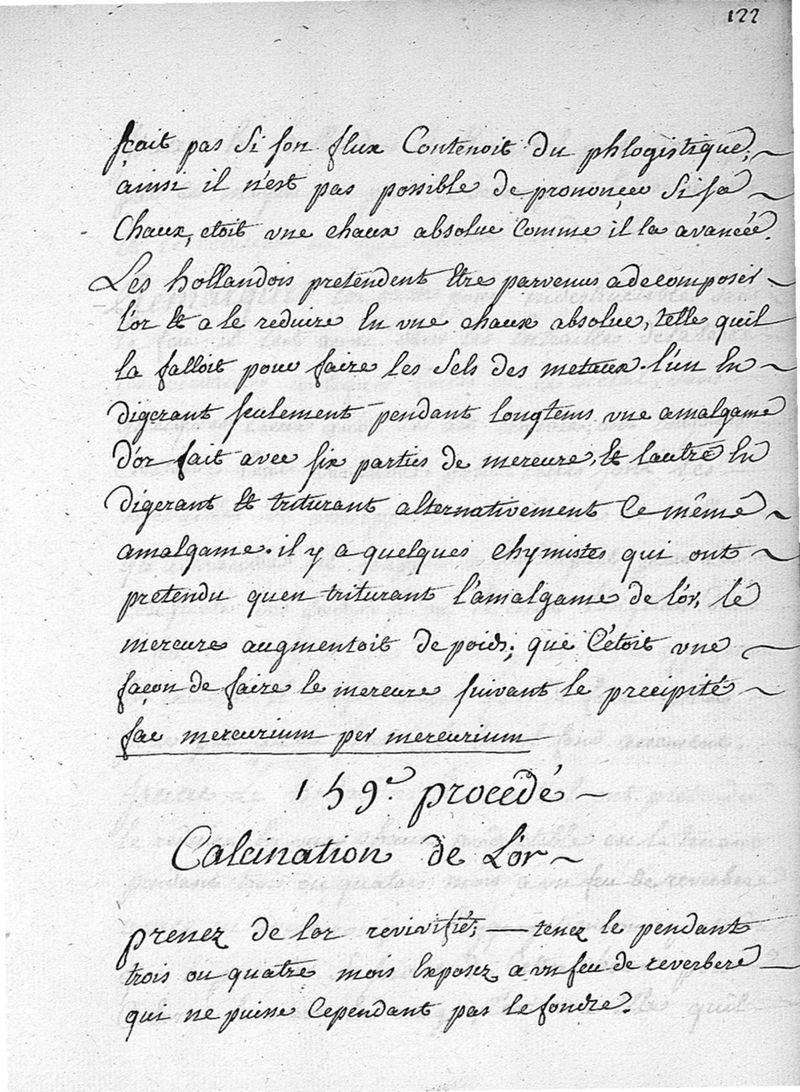 122
sçait pas Si son flux Contenoit Du phlogistique,
ainsi il n'est pas possible de prononcer Si sa
Chaux, etoit vne chaux absolue Comme il la avancée.
Les hollandois pretendent Etre parvenus a decomposer
l'or Et a le reduire En vne chaux absolue, telle quil
la falloit pour faire les Sels des metaux. l'un En
digerant seulement pendant longtems vne amalgame
d'or fait avec six parties de mercure, Et lautre En
digerant Et triturant alternativement Ce même
amalgame. il y a quelques chymistes qui ont
pretendu quen triturant l'amalgame de l'or, le
mercure augmentoit de poids; que C'étoit vne
façon de faire le mercure suivant le precipité
fac mercurium per mercurium
159.e procedé
Calcination de L'or
prenez de lor revivifié; — tenez le pendant
trois ou quatre mois Exposez a vn feu de reverbere
qui ne puisse Cependant pas le fondre.